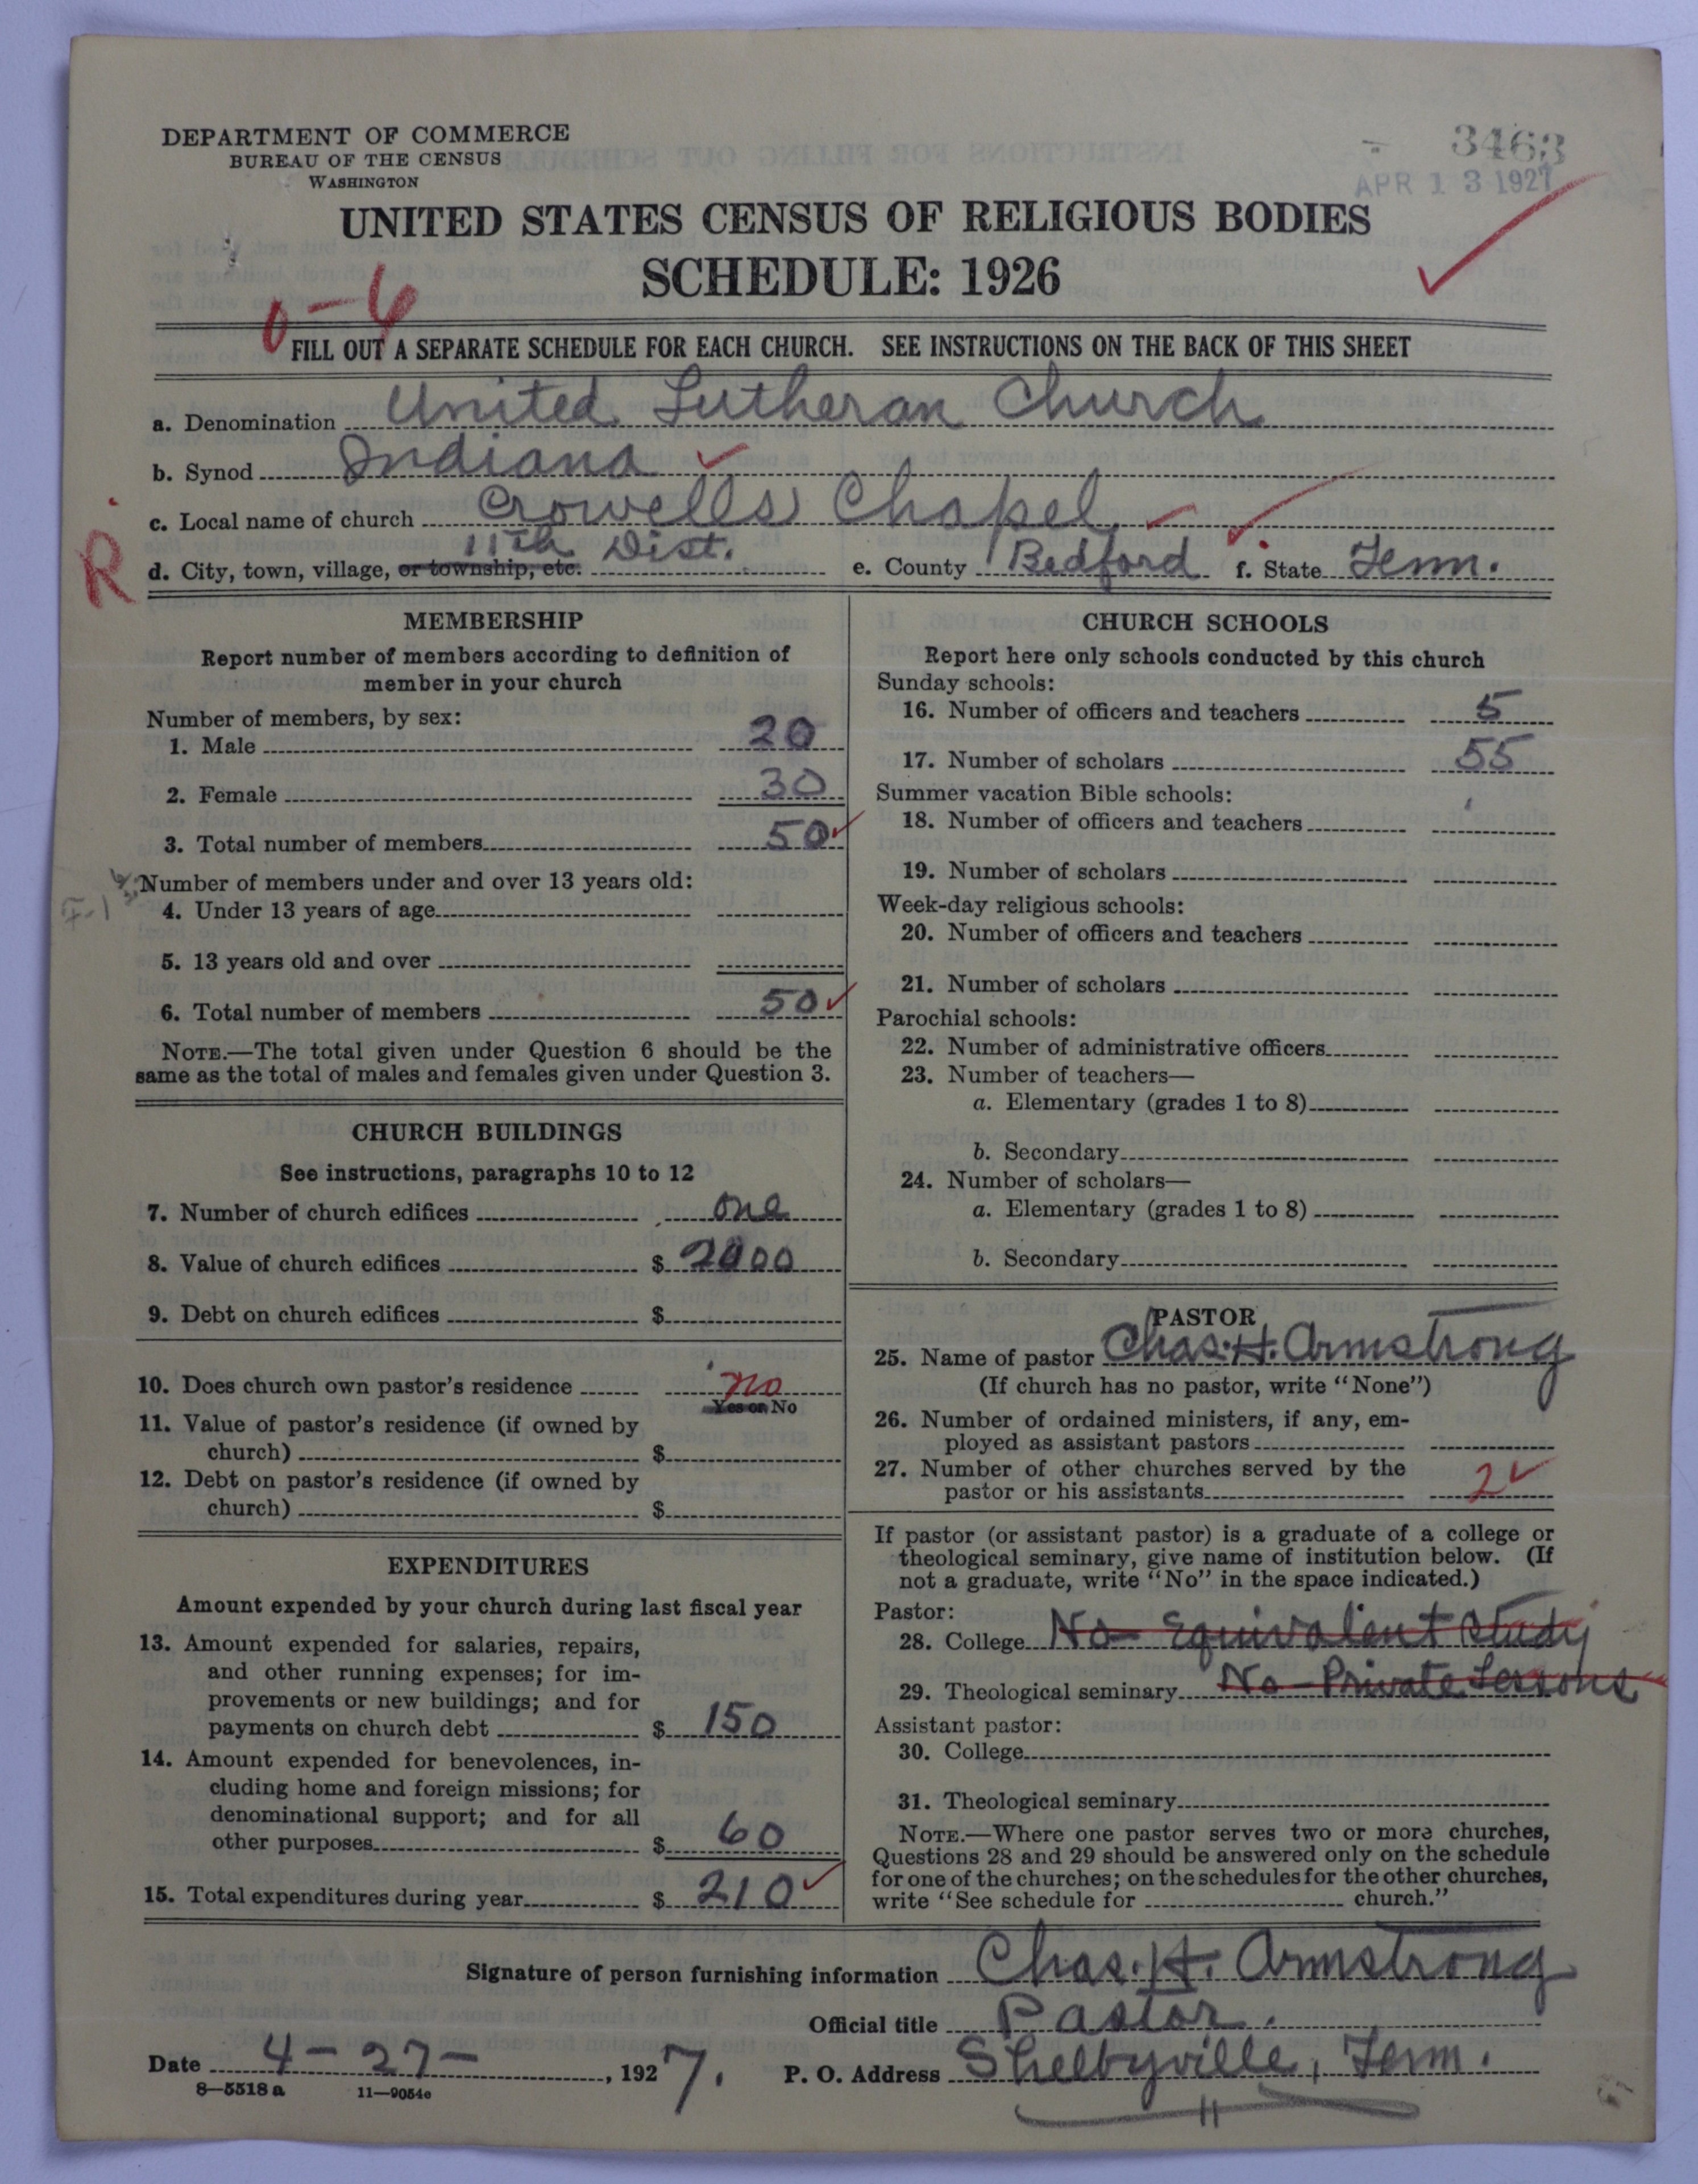 DEPARTMENT OF COMMERCE
BUREAU OF THE CENSUS
WASHINGTON
3463
APR 13 1927
UNITED STATES CENSUS OF RELIGIOUS BODIES
SCHEDULE: 1926
0-6
FILL OUT A SEPARATE SCHEDULE FOR EACH CHURCH. SEE INSTRUCTIONS ON THE BACK OF THIS SHEET
a. Denomination United Lutheran Church
b. Synod Indiana
c. Local name of church Crowells Chapel
R d. City, town, village, or township, etc. 11th Dist. e. County Bedford f. State Tenn.
MEMBERSHIP
Report number of members according to definition of
member in your church
Number of members, by sex:
1. Male 20
2. Female 30
3. Total number of members 50
Number of members under and over 13 years old:
4. Under 13 years of age
5. 13 years old and over
6. Total number of members 50
NOTE.—The total given under Question 6 should be the
same as the total of males and females given under Question 3.
CHURCH BUILDINGS
See instructions, paragraphs 10 to 12
7. Number of church edifices one
8. Value of church edifices $ 2000
9. Debt on church edifices $
10. Does church own pastor's residence no
Yes or No
11. Value of pastor's residence (if owned by
church) $
12. Debt on pastor's residence (if owned by
church) $
EXPENDITURES
Amount expended by your church during last fiscal year
13. Amount expended for salaries, repairs,
and other running expenses; for im-
provements or new buildings; and for
payments on church debt $ 150
14. Amount expended for benevolences, in-
cluding home and foreign missions; for
denominational support; and for all
other purposes $ 60
15. Total expenditures during year $ 210
CHURCH SCHOOLS
Report here only schools conducted by this church
Sunday schools:
16. Number of officers and teachers 5
17. Number of scholars 55
Summer vacation Bible schools:
18. Number of officers and teachers
19. Number of scholars
Week-day religious schools:
20. Number of officers and teachers
21. Number of scholars
Parochial schools:
22. Number of administrative officers
23. Number of teachers—
a. Elementary (grades 1 to 8)
b. Secondary
24. Number of scholars—
a. Elementary (grades 1 to 8)
b. Secondary
PASTOR
25. Name of pastor Chas. H. Armstrong
(If church has no pastor, write "None")
26. Number of ordained ministers, if any, em-
ployed as assistant pastors
27. Number of other churches served by the
pastor or his assistants 2
If pastor (or assistant pastor) is a graduate of a college or
theological seminary, give name of institution below. (If
not a graduate, write "No" in the space indicated.)
Pastor:
28. College No - Equivalent Study
29. Theological seminary No - Private Lessons
Assistant pastor:
30. College
31. Theological seminary
NOTE.—Where one pastor serves two or more churches,
Questions 28 and 29 should be answered only on the schedule
for one of the churches; on the schedules for the other churches,
write "See schedule for church."
Signature of person furnishing information Chas. H. Armstrong
Official title Pastor.
Date 4-27-, 1927. P. O. Address Shelbyville, Tenn.
8—5518 a 11—9054e